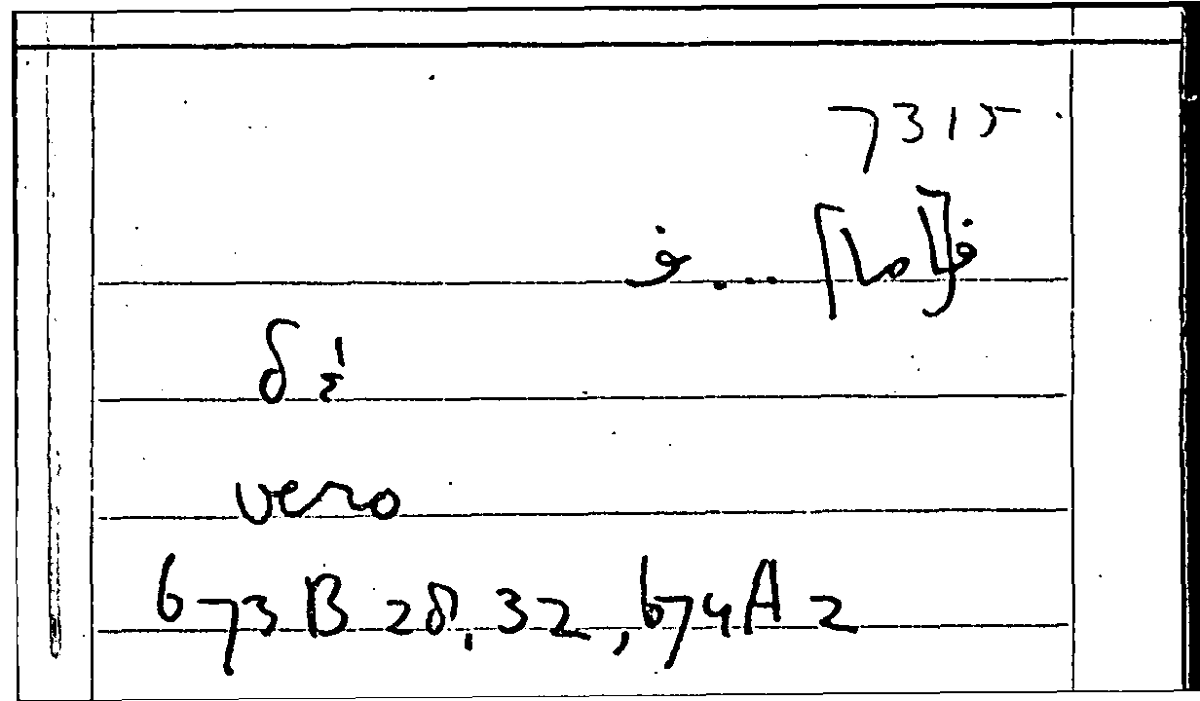 7315
ف[اما] ... ف
δέ
vero
673B 28, 32, 674A 2